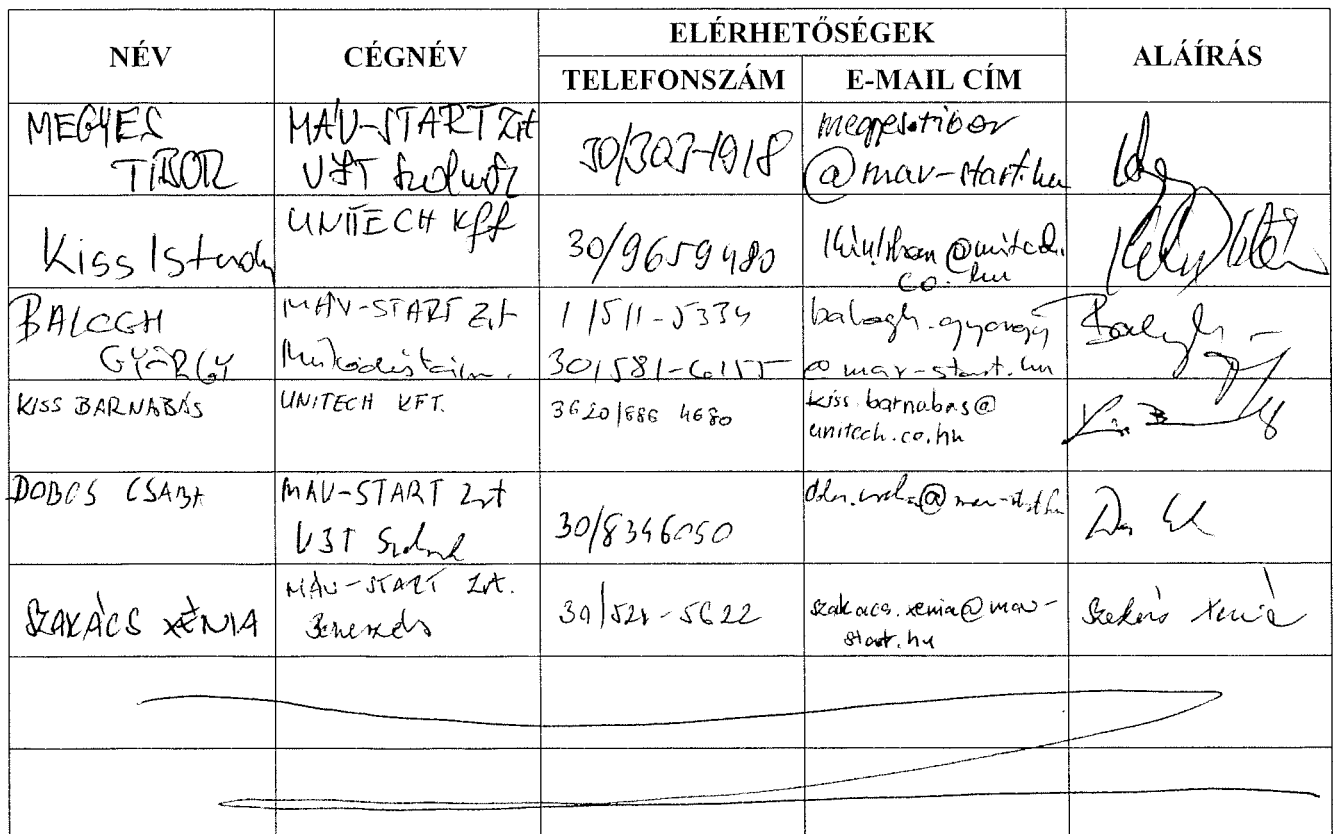 NÉV
CÉGNÉV
ELÉRHETŐSÉGEK
TELEFONSZÁM
E-MAIL CÍM
ALÁÍRÁS
MEGYES
TIBOR
MÁV-START Zrt
VJT Szolnok
30/303-1918
megyes.tibor
@mav-start.hu
Kiss István
UNITECH Kft
30/9659480
co.hu
BALOGH
GYÖRGY
MÁV-START Zrt
1/511-5334
30/581-6155
balogh.gyorgy
@mav-start.hu
KISS BARNABÁS
UNITECH KFT.
3620/886 4680
kiss.barnabas@
unitech.co.hu
DOBOS CSABA
MÁV-START Zrt
VJT Szolnok
30/8346050
SZAKÁCS XÉNIA
MÁV-START Zrt.
szakacs.xenia@mav-
start.hu
Szakács Xénia